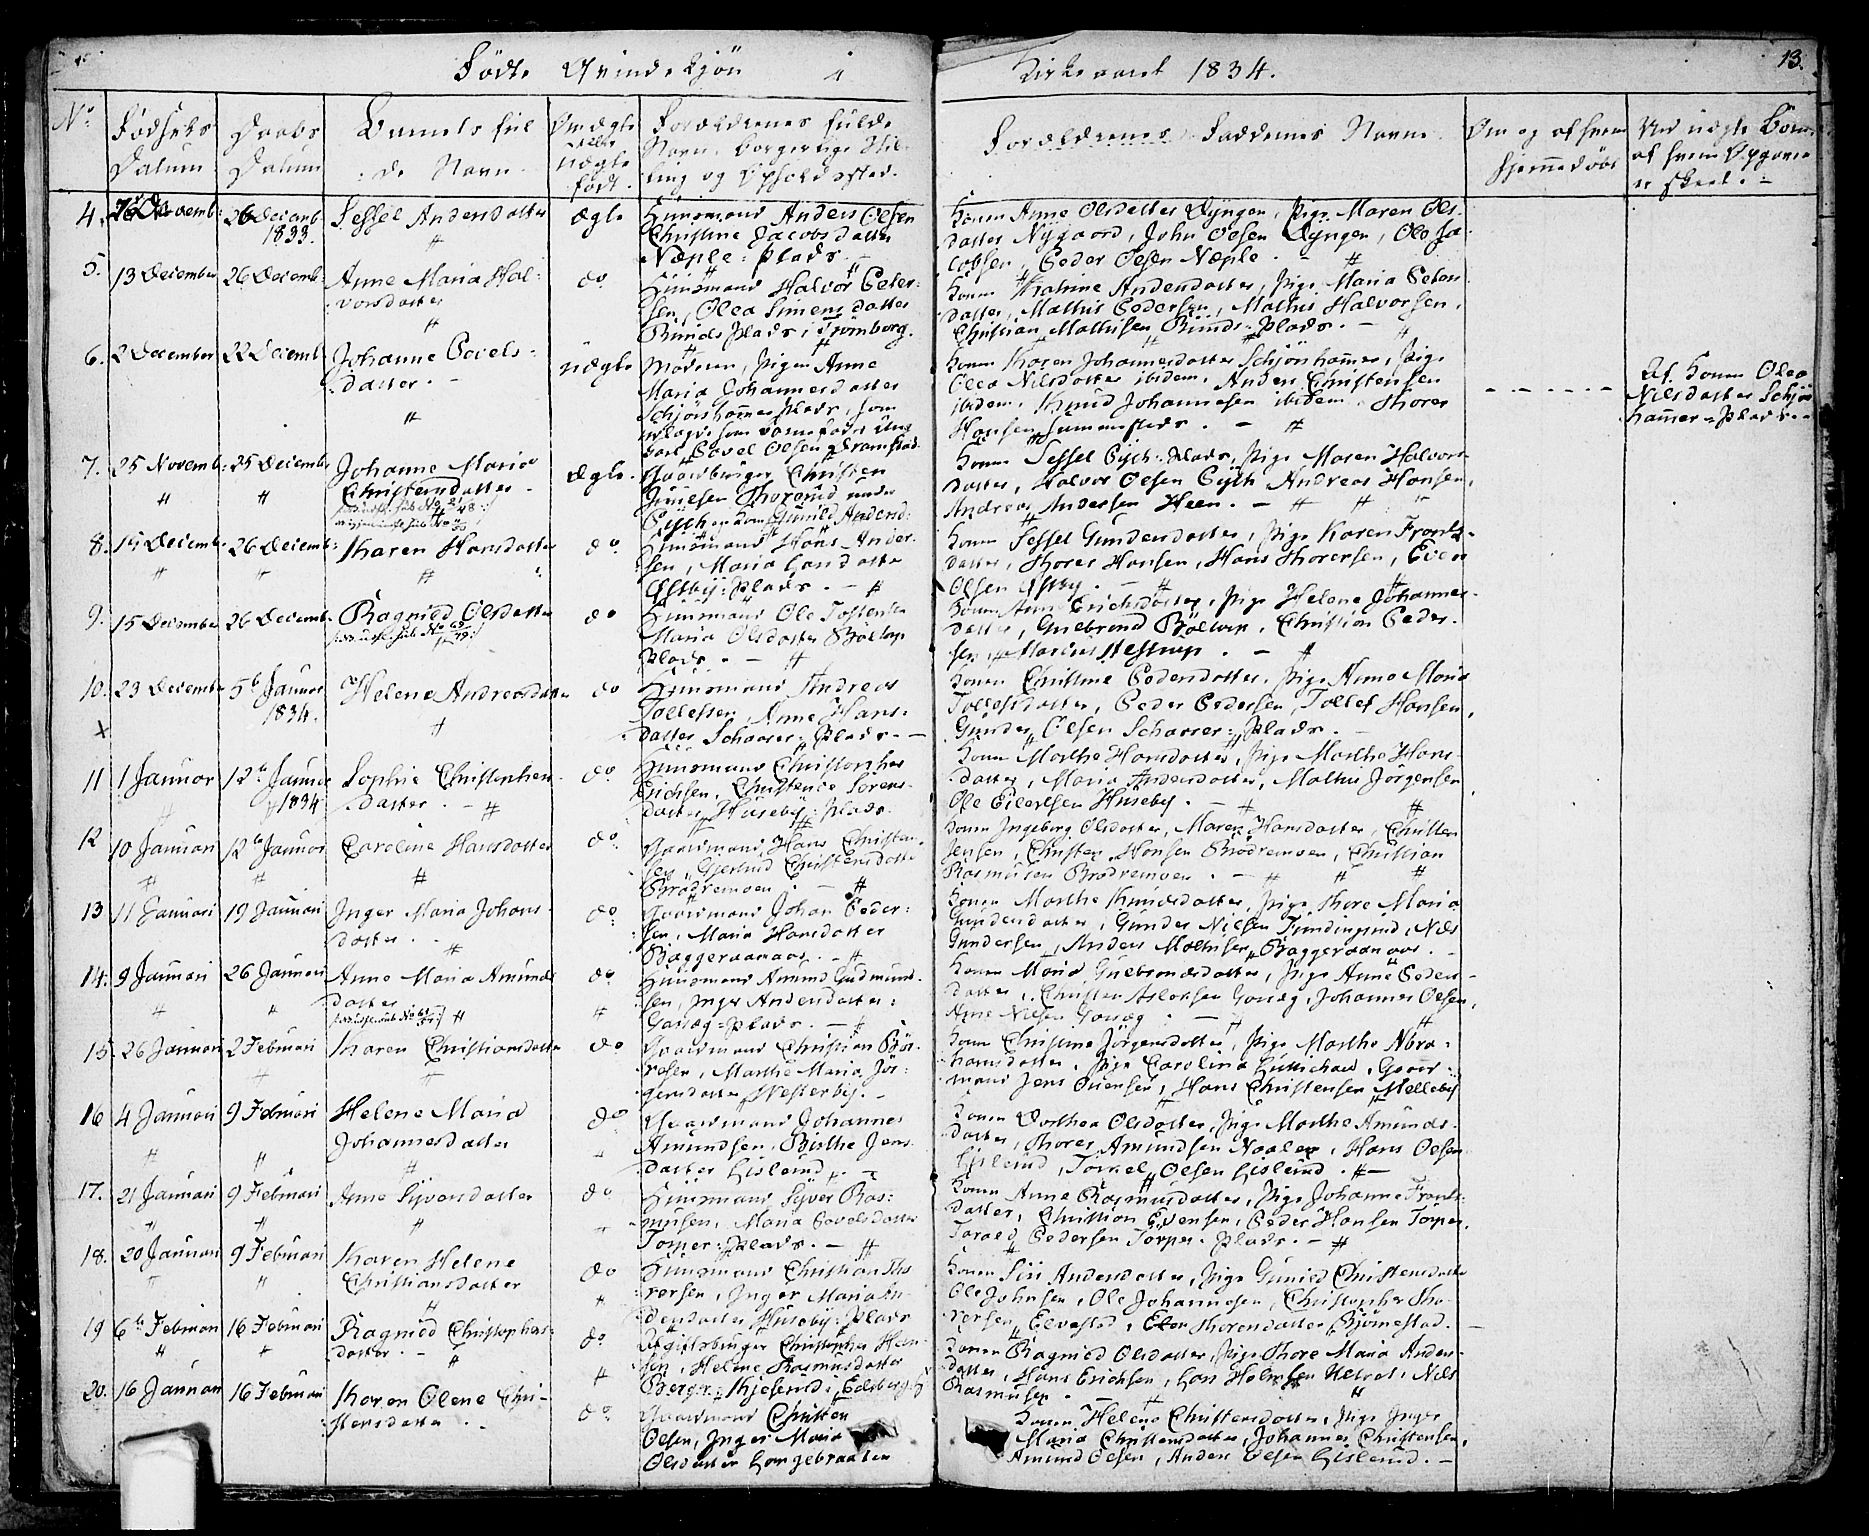 Födte Qvindekjön i Kirkeaaret 1834. 13.
No. Fødsels Datum Daabs Datum Barnets fulde Navn Om ægte eller uægte født. Forældrenes fulde Navn, borgerlige Stilling og Opholdssted. Forældrenes Faddernes Navne Om og af hvem hjemmedøbt Ved uægte Børn af hvem Opgaven er skeet.
4. Novemb: 26 Decemb: 1833. Sessel Andersdatter ægte Huusmand Anders Olsen
Christine Jacobsdatter
Næple: Plads.
Konen Anne Olsdatter Dyngen, Pige Maren Ols-
datter Nygaard, John Olsen Dyngen, Ole Ja-
cobsen, Peder Olsen Næple.
5. 13 December 26 Decemb: Anne Maria Hal-
vorsdatter
do Huusmand Halvor Peter-
sen, Olea Simensdatter
Runds Plads, i Trømborg.
Konen Kathrine Andersdatter, Pige Maria Peters-
datter, Mathis Pedersen, Mathis Halvorsen,
Christian Mathisen Runds: Plads.
6. 2 December 22 Decemb: Johanne Povels-
datter.
uægte Moderen, Pigen Anne
Maria Johannesdatter
Schjönhammer Plads, som
udlagde som Barnefader Ung-
karl Povel Olsen Gramstad.
Konen Karen Johannesdatter Schjönhammer, Pige
Olea Nilsdatter ibidem, Anders Christensen
ibidem, Knud Johannesen ibidem, Thorer
Hansen Sammesteds.
Af Konen Olea
Nilsdatter Schjön-
hammer-Plads.
7. 25 Novemb: 25 Decemb: Johanne Maria
Christensdatter
ægte. Gaardbruger Christen
Jensen Thorerud under
Eych og Kone Gunild Andersd:
Konen Sessel Eych: Plads, Pige Maren Halvors-
datter, Halvor Olsen Eych, Andreas Hansen,
Andreas Andersen Heen.
8. 14 Decemb: 26 Decemb: Karen Hansdatter
do Huusmand Hans Ander-
sen, Maria Larsdatter
Østby: Plads.
Konen Sessel Gundersdatter, Pige Karen Frants-
datter, Thorer Hansen, Hans Thorersen, Even
Olsen Østby.
9. 15 December 26 Decemb: Ragnild Olsdatter
do Huusmand Ole Tostensen
Maria Olsdatter Böltop
Plads.
Konen Anne Erichsdatter, Pige Helene Johannes-
datter, Gulbrand Böltop, Christian Peder-
sen, Marius Mestrup.
10. 23 Decemb: 5te Januar 1834. Helene Andreasdatter
do Huusmand Andreas
Tollefsen, Anne Hans-
datter Schaarer: Plads.
Konen Christine Pedersdatter, Pige Anne Maria
Tollefsdatter, Peder Pedersen, Tollef Hansen,
Gunder Olsen Schaarer: Plads.
11 1 Januar 12te Januar 1834 Sophie Christopher-
datter.
do. Huusmand Christopher
Erichsen, Christence Sörens-
datter Huseby: Plads.
Konen Marthe Hansdatter, Pige Marthe Hans-
datter, Maria Andersdatter, Mathis Jörgensen
Ole Eilertsen Huseby.
12 10 Januari 12te Januar Caroline Hansdatter
do. Gaardmand Hans Christen-
sen, Gjertrud Christensdatter
Brödremoen
Konen Ingeborg Olsdatter, Maren Hansdatter, Christen
Jensen, Christen Hansen Brödremoen, Christian
Rasmusen Brödremoen.
13 11 Januari 19 Januari Inger Maria Johans-
datter.
do. Gaardmand Johan Peder-
sen, Maria Hansdatter
Baggeraanaas.
Konen Marthe Knudsdatter, Pige Thore Maria
Gundersdatter, Gunder Nielsen Fundingrud, Nils
Gundersen, Anders Mathisen, Baggeraanaas.
14. 9 Januari 26 Januari Anne Maria Amunds
datter
do Huusmand Amund Gudmund-
sen, Inger Andersdatter
Gaasög-Plads.
Konen Maria Gulbrandsdatter, Pige Anne Peders-
datter, Christen Aslaksen Gaasög, Johannes Olsen,
Arne Nilsen Gaasög
15. 26 Januari 2 Februari Karen Christiansdatter
do Gaardmand Christian Bör-
resen, Marthe Maria Jör-
gensdatter Westerby.
Konen Christine Jörgensdatter, Pige Marthe Abra-
hamsdatter, Pige Carolina Lüttichau, Gaard-
mand Jens Ouensen, Hans Christensen Melleby
16 4 Januari 9 Februari Helene Maria
Johannesdatter
do Gaardmand Johannes
Amundsen, Birthe Jens-
datter Lislerud.
Konen Dorthea Olsdatter, Pige Marthe Amunds-
datter, Thorer Amundsen Naalen, Hans Olsen
Lislerud, Torkel Olsen Lislerud.
17. 21 Januari 9 Februari Anne Syversdatter
do Huusmand Syver Ras-
musen, Maria Povelsdatter
Torper: Plads.
Konen Anne Rasmusdatter, Pige Johanne Frants-
datter, Christian Evensen, Peder Hansen Torper,
Torald Pedersen Torper-Plads.
18. 20 Januari 9 Februari Karen Helene
Christiansdatter
do Huusmand Christian Tho-
rersen, Inger Maria An-
dersdatter Huseby: Plads
Konen Siri Andersdatter, Pige Gunild Christensdatter
Ole Johnsen, Ole Johannesen, Christopher Tho-
rersen, Elvestad, Ellen Thorersdatter Bjørnestad.
19 6te Februari 16 Februari Ragnild Christophers-
datter.
do. Afgiftsbruger Christopher Han-
sen, Helene Rasmusdatter
Berger: Kjeserud i Eidsberg
Konen Ragnild Olsdatter, Pige Thore Maria Anders-
datter, Hans Erichsen, Lars Helvet, Nils
Rasmusen.
20. 16 Januari 16 Februari Karen Olene Chri-
stensdatter.
do. Gaardmand Christen
Olsen, Inger Maria
Olsdatter Langebraaten
Konen Helene Christensdatter, Pige Inger
Maria Christensdatter, Johannes Christensen,
Amund Olsen, Anders Olsen Lislerud.